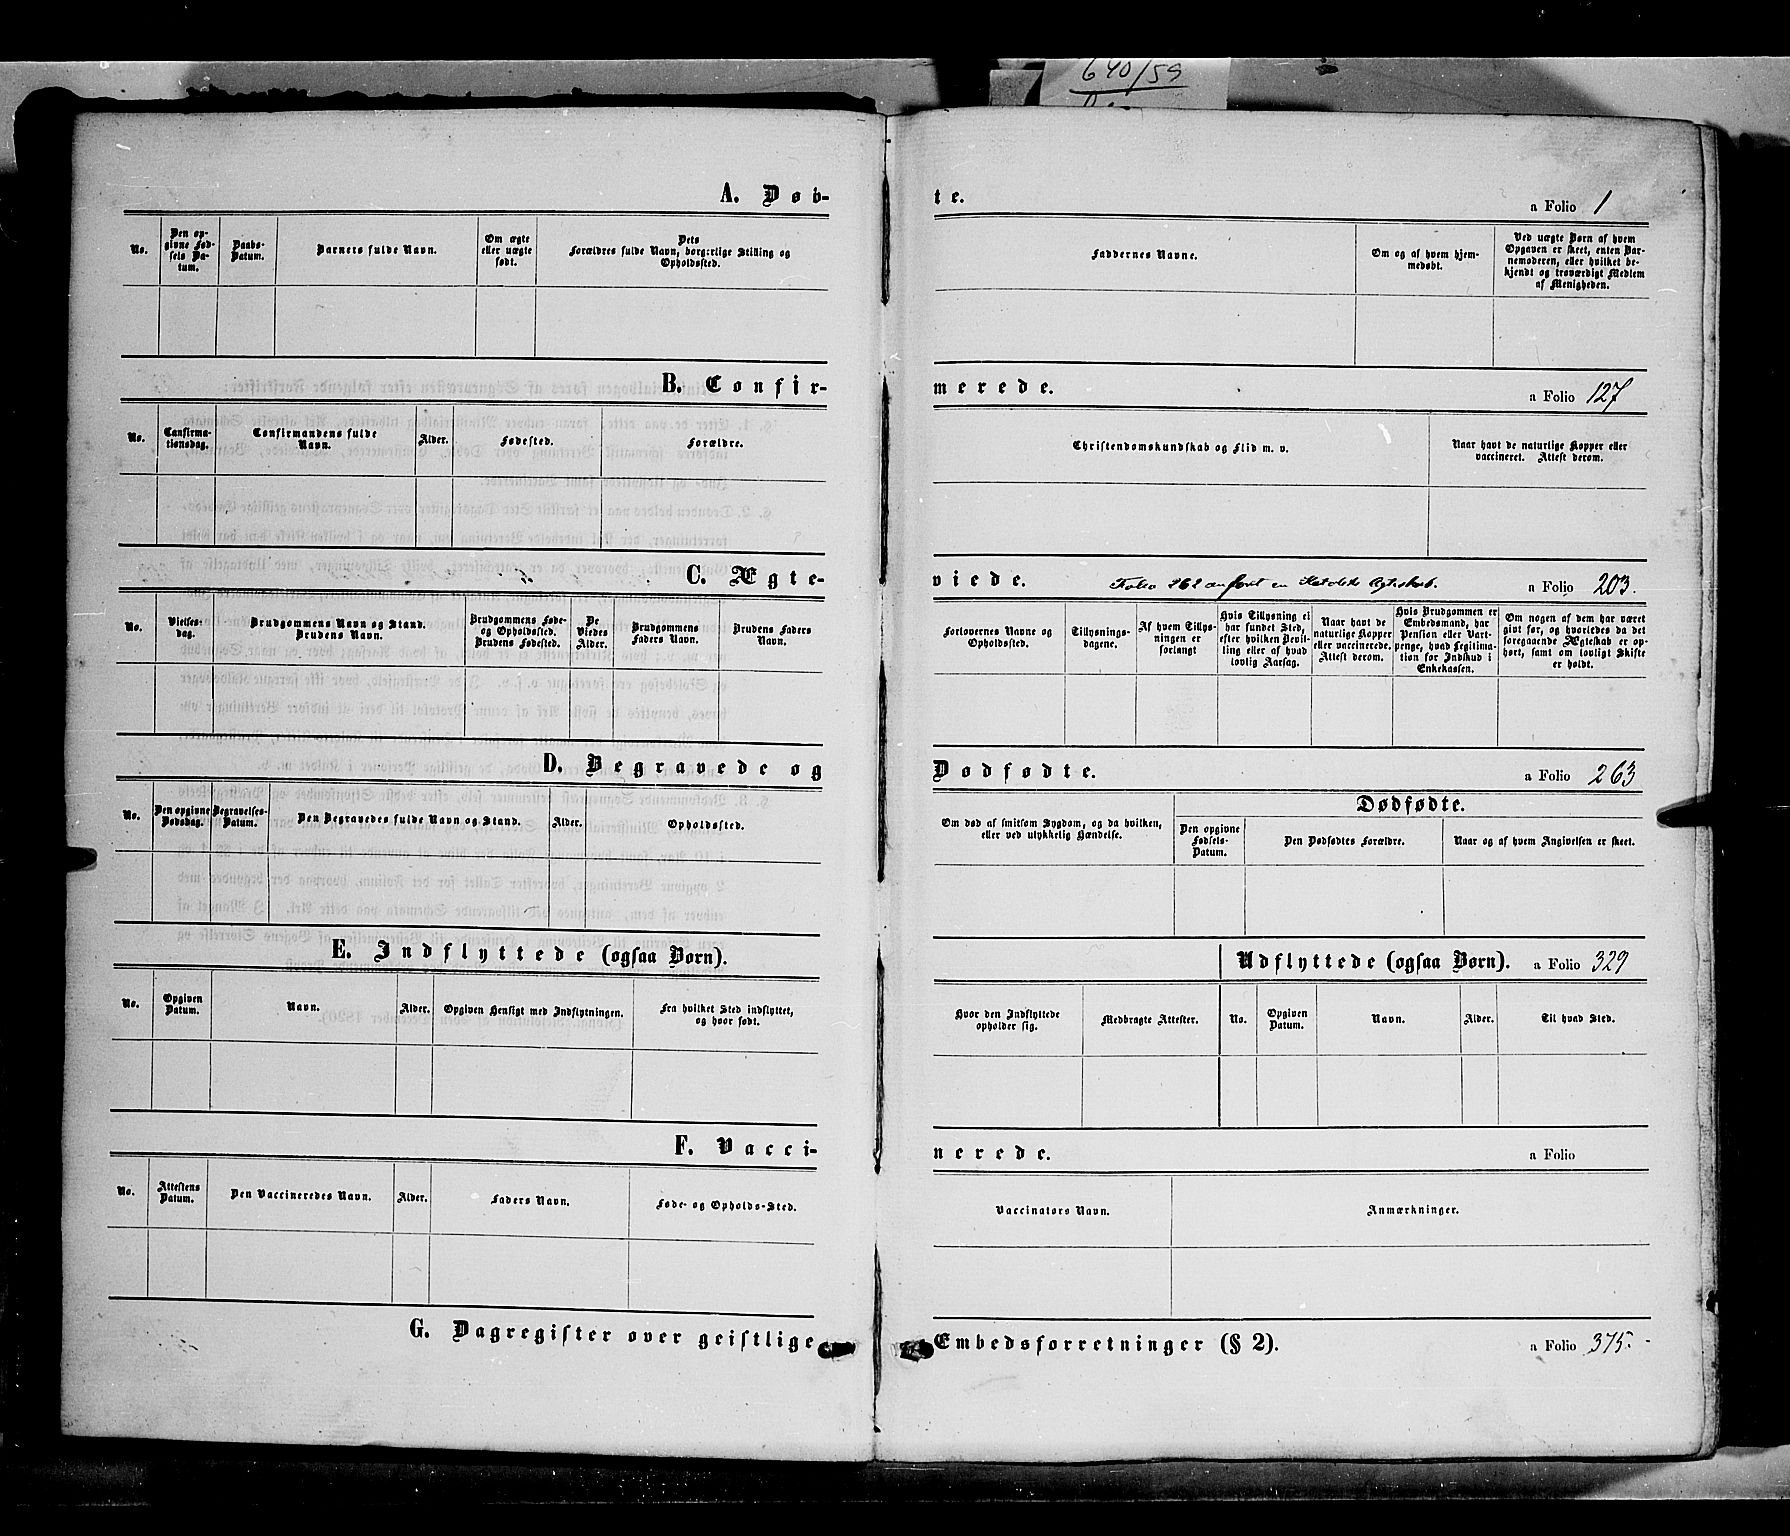 640/59
A. Døb-
te.
a Folio 1
No.
Den op-
givne Fød-
sels Da-
tum.
Daabs-
Datum.
Barnets fulde Navn.
Om ægte
eller uægte
født.
Dets
Forældres fulde Navn, borgerlige Stilling og
Opholdssted.
Faddernes Navne.
Om og af hvem hjem-
medøbt.
Ved uægte Børn af hvem
Opgaven er skeet, enten Bar-
nemoderen, eller hvilket be-
kjendt og troværdigt Medlem
af Menigheden.
B. Confir-
merede.
a Folio 127
No.
Confirma-
tionsdag.
Confirmandens fulde
Navn.
Alder.
Fødested.
Forældre.
Christendomskundskab og Flid m. v.
Naar havt de naturlige Kopper eller
vaccineret. Attest derom.
C. Ægte-
viede.
Folio 262 anført en Katolsk Egteskab.
a Folio 203.
No.
Vielses-
dag.
Brudgommens Navn og Stand.
Brudens Navn.
Brudgommens Føde-
og Opholdssted.
Brudens Fødested.
De
Viedes
Alder.
Brudgommens
Faders Navn.
Brudens Faders
Navn.
Forlovernes Navne og
Opholdssted.
Tillysnings-
dagene.
Af hvem Tillys-
ningen er
forlangt
Hvis Tillysning ei
har fundet Sted,
efter hvilken Bevil-
ling eller af hvad
lovlig Aarsag.
Naar havt de
naturlige Kopper
eller vaccinerede.
Attest derom.
Hvis Brudgommen er
Embedsmand, har
Pension eller Vart-
penge, hvad Legitima-
tion for Indskud i
Enkekassen.
Om nogen af dem har været
givt før, og hvorledes da det
foregaaende Ægteskab er op-
hørt, samt om lovligt Skifte
er holdt.
D. Begravede og
Dødfødte.
a Folio 263
No.
Den opgivne
Dødsdag.
Begravelses-
Datum.
Den Begravedes fulde Navn og Stand.
Alder.
Opholdssted.
Om død af smitsom Sygdom, og da hvilken,
eller ved ulykkelig Hændelse.
Dødfødte.
Den opgivne
Fødsels-
Datum.
Den Dødfødtes Forældre.
Naar og af hvem Angivelsen er skeet.
E. Indflyttede (ogsaa Børn).
Udflyttede (ogsaa Børn).
a Folio 329
No.
Opgiven
Datum.
Navn.
Alder.
Opgiven Hensigt med Indflytningen.
Fra hvilket Sted indflyttet,
og hvor født.
Hvor den Indflyttede
opholder sig.
Medbragte Attester.
No.
Opgiven
Datum.
Navn.
Alder.
Til hvad Sted.
F. Vacci-
nerede.
a Folio
No.
Attestens
Datum.
Den Vaccineredes Navn.
Alder.
Faders Navn.
Føde- og Opholds-Sted.
Vaccinators Navn.
Anmærkninger.
G. Dagregister over geistlige
Embedsforretninger (§ 2).
a Folio 375.